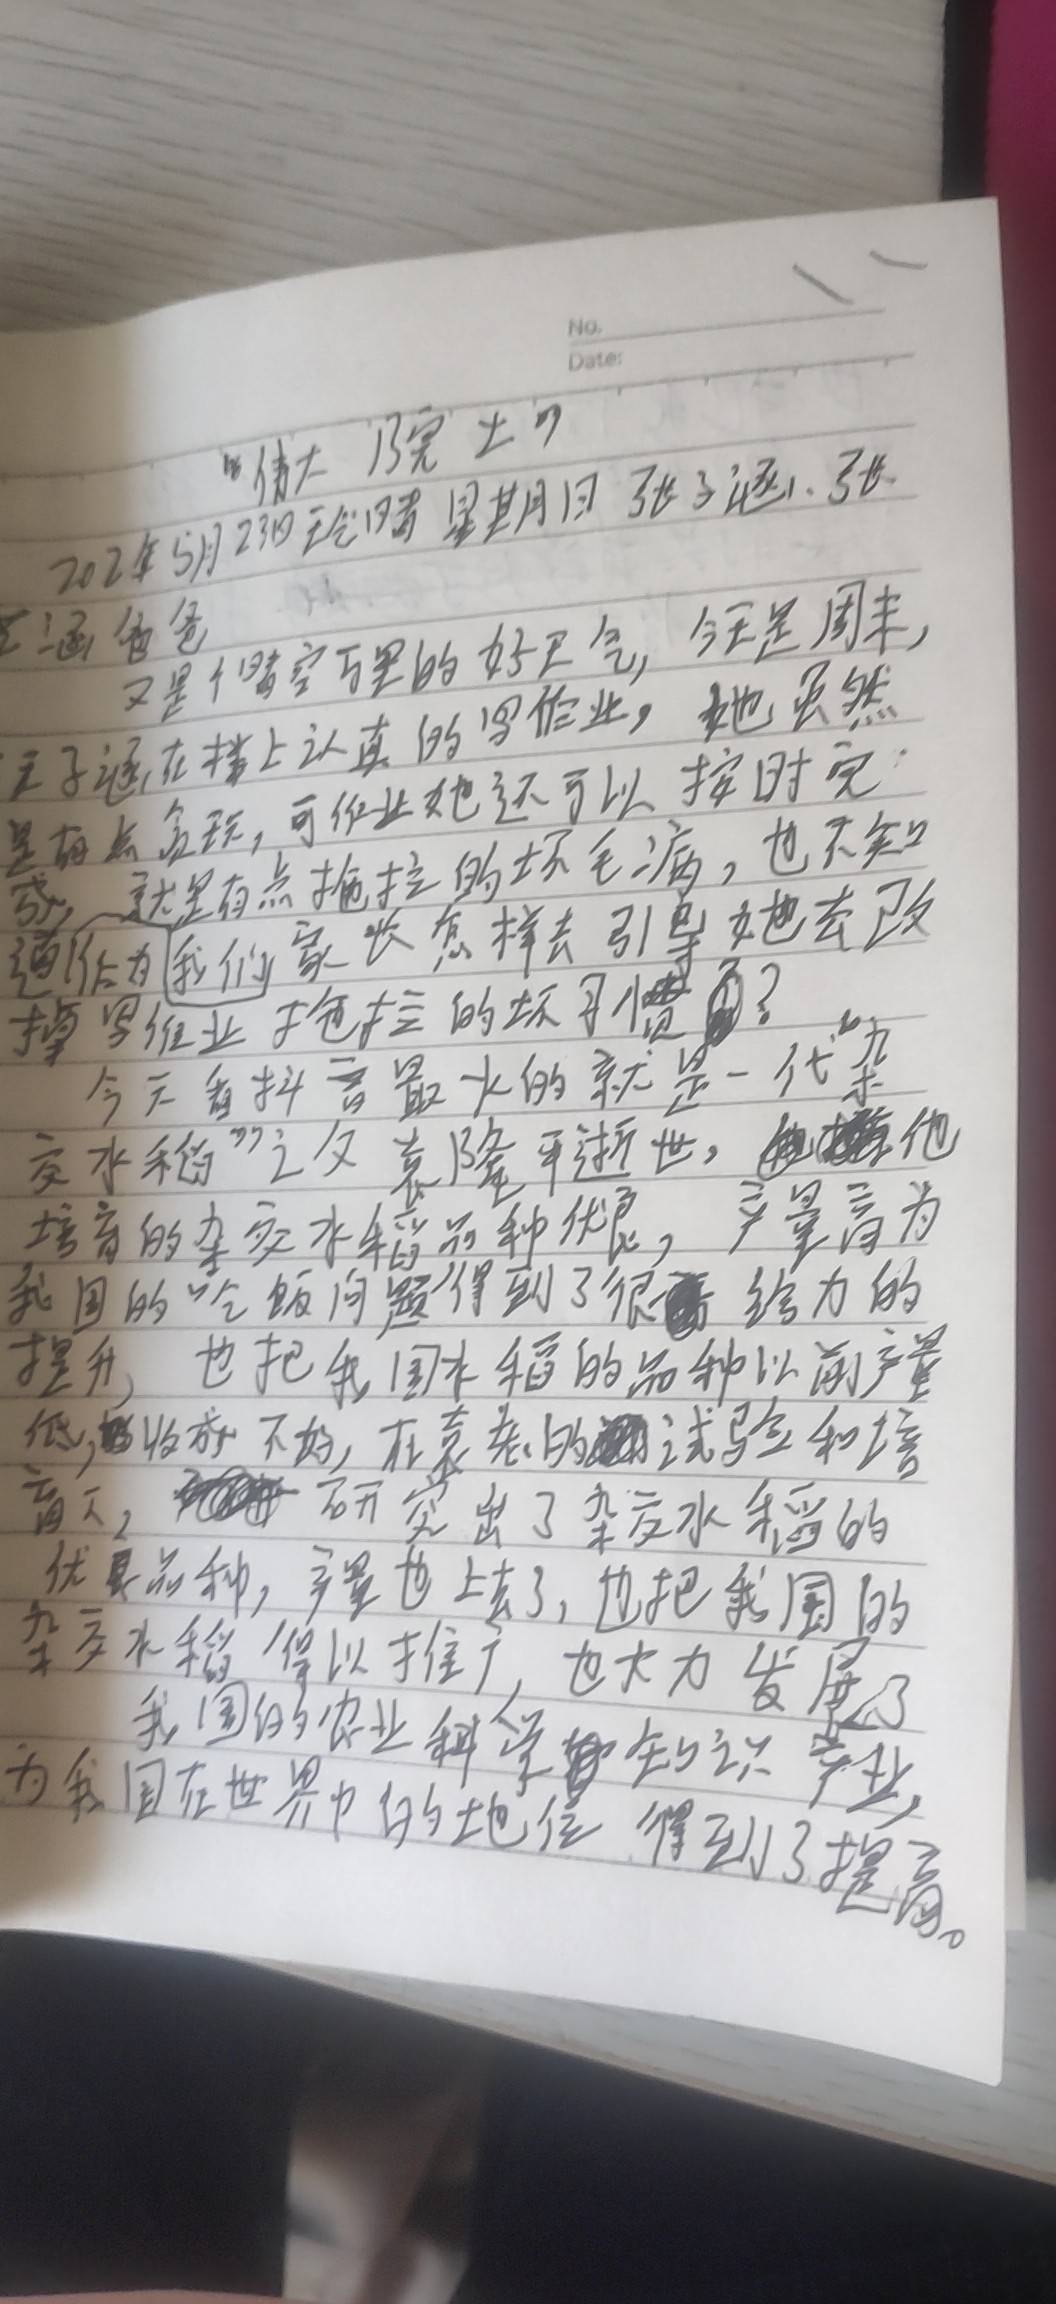 No.
Date:
"伟大 院士"
202年5月23日天气晴 星期日 张子涵、张
子涵爸爸
又是个晴空万里的好天气，今天是周末，
子涵在楼上认真的写作业，她虽然
是有点贪玩，可作业她还可以按时完
成，就是有点拖拉的坏毛病，也不知
道作为我们家长怎样去引导她去改
掉写作业拖拉的坏习惯？
今天看抖音最火的就是一代"杂
交水稻"之父袁隆平逝世，他
培育的杂交水稻品种优良，产量高为
我国的"吃饭问题得到了很给力的
提升，也把我国水稻的品种以前产量
低，收成不好，在袁老的试验和培
育下，研究出了杂交水稻的
优良品种，产量也上去了，也把我国的
杂交水稻得以推广，也大力发展了
我国的农业科学知识产业，
为我国在世界中的地位得到了提高。